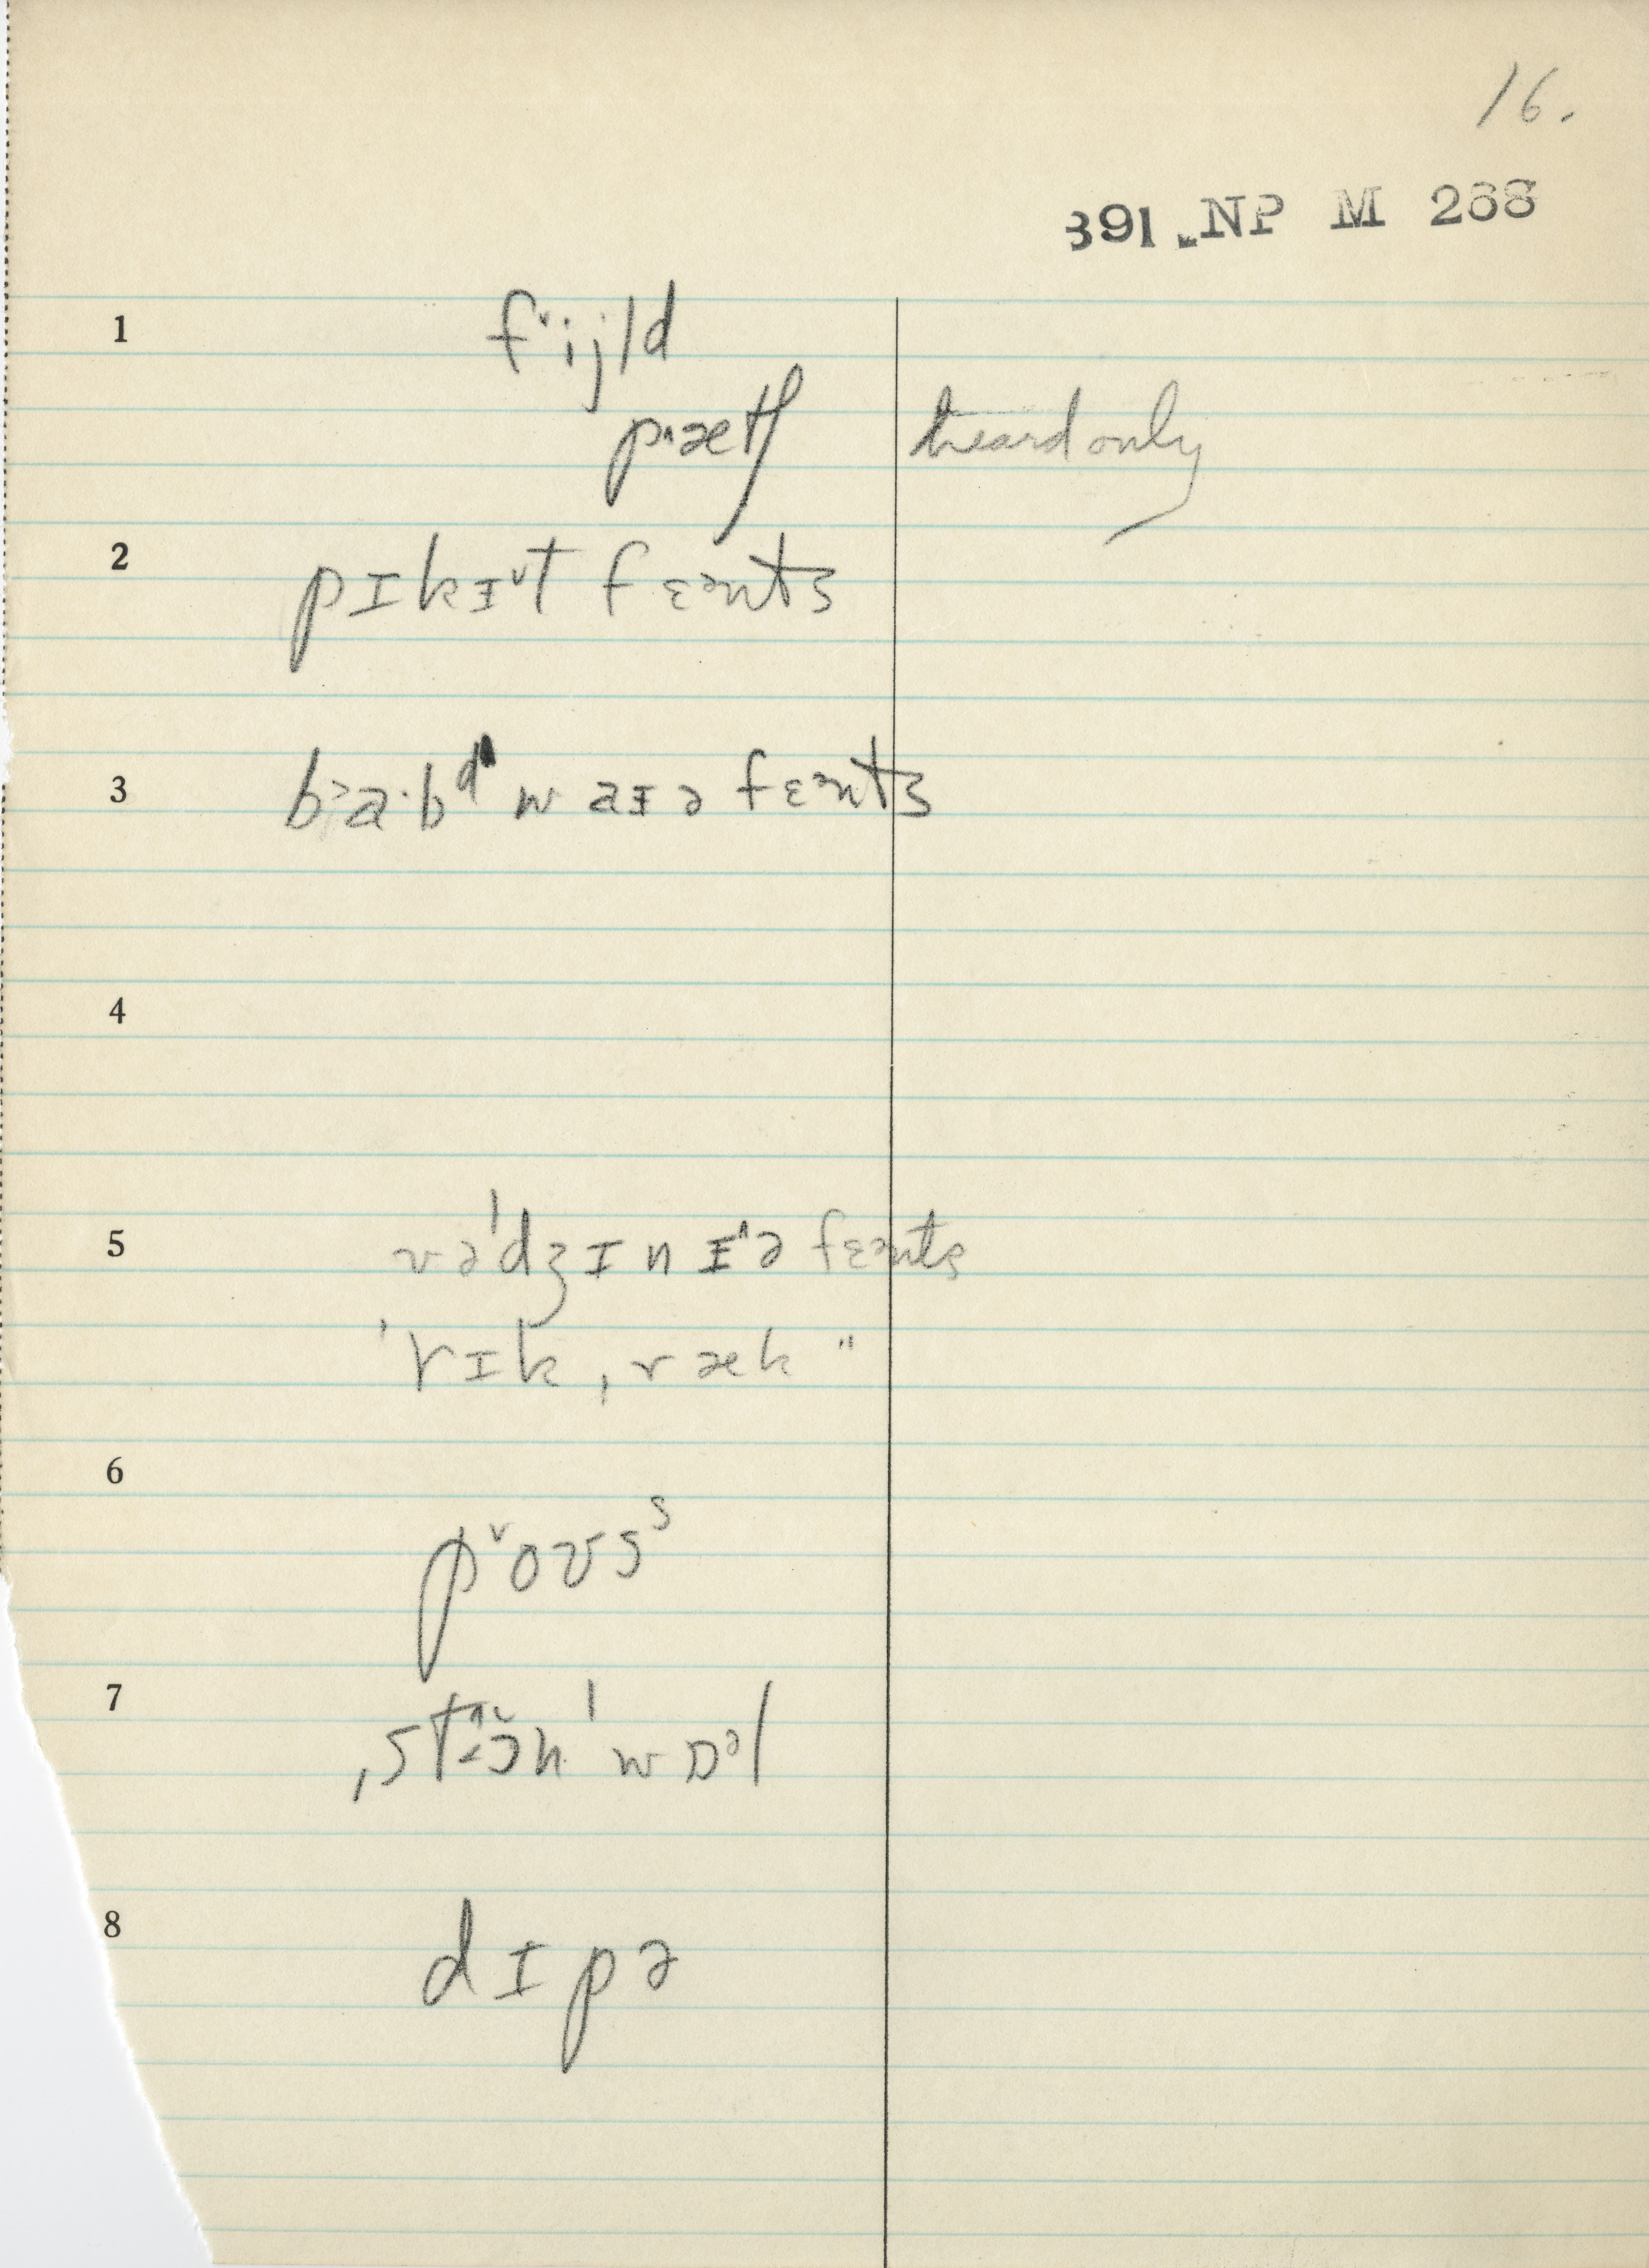 16.
391 NP M 268
1 f˅ijld
p˄ætʃ heard only
2 pɪkɪ˅t fɛənts
3 b˃a·bᵈ waɪə fɛənts
4
5 və'dʒɪnɪ˄ə fɛənts
'rɪk ˌræk "
6
p˅oʊsˢ
7 ˌst˄ɔ̃n 'wɒᵊl
8
dɪpə